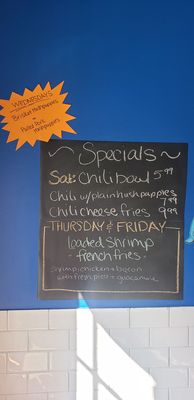 WEDNESDAYS
Brisket Hushpuppies
+
Pulled Pork
Hushpuppies
~ Specials ~
Sat: Chili bowl 5.99
Chili w/plain hushpuppies
7.99
Chili cheese fries 9.99
THURSDAY & FRIDAY
loaded shrimp
french fries
shrimp, chicken + bacon
with fresh pico + guacamole